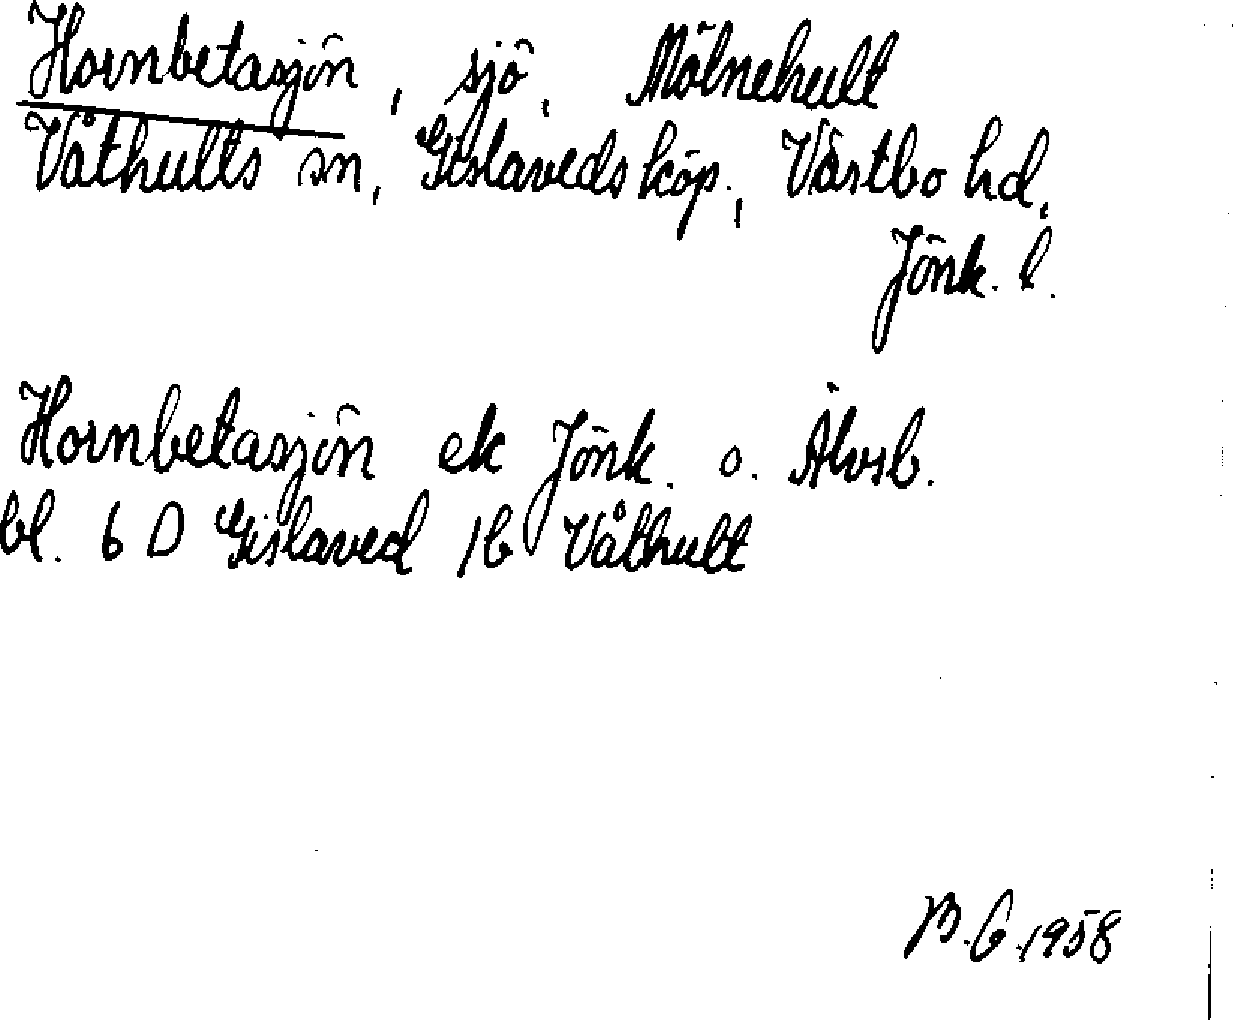 Hornbetasjön, sjö, Mölnehult
Våthults sn, Gislaveds köp., Västbo hd,
Jönk. l.
Hornbetasjön ek Jönk. o. Älvsb.
bl. 6 D Gislaved 1b Våthult
B.G. 1958